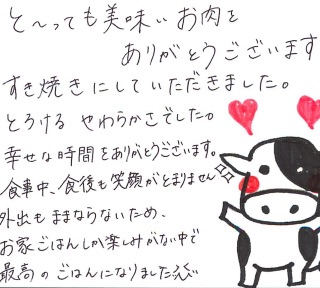 と〜っても美味しいお肉を
ありがとうございます
すき焼きにしていただきました。
とろける やわらかさでした。
幸せな時間をありがとうございます。
食事中、食後も笑顔がとまりません
外出もままならないため、
お家ごはんしか楽しみがない中で
最高のごはんになりました